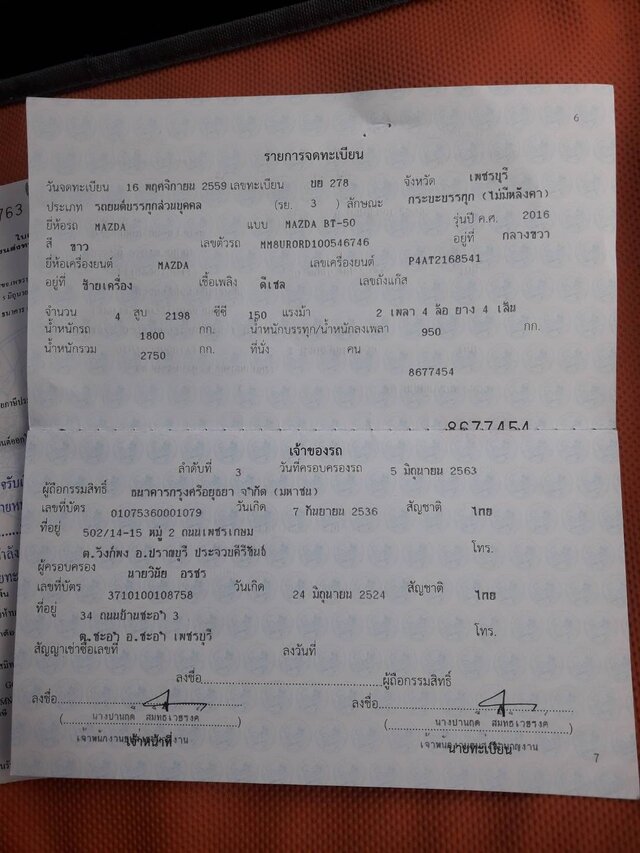 6
รายการจดทะเบียน
วันจดทะเบียน 16 พฤศจิกายน 2559 เลขทะเบียน บย 278 จังหวัด เพชรบุรี
ประเภท รถยนต์บรรทุกส่วนบุคคล (รย. 3 ) ลักษณะ กระบะบรรทุก (ไม่มีหลังคา)
ยี่ห้อรถ MAZDA แบบ MAZDA BT-50 รุ่นปี ค.ศ. 2016
สี ขาว เลขตัวรถ MM8URORD100546746 อยู่ที่ กลางขวา
ยี่ห้อเครื่องยนต์ MAZDA เลขเครื่องยนต์ P4AT2168541
อยู่ที่ ซ้ายเครื่อง เชื้อเพลิง ดีเซล เลขถังแก๊ส
จำนวน 4 สูบ 2198 ซีซี 150 แรงม้า 2 เพลา 4 ล้อ ยาง 4 เส้น
น้ำหนักรถ 1800 กก. น้ำหนักบรรทุก/น้ำหนักลงเพลา 950 กก.
น้ำหนักรวม 2750 กก. ที่นั่ง คน
8677454
8677454
เจ้าของรถ
ลำดับที่ 3 วันที่ครอบครองรถ 5 มิถุนายน 2563
ผู้ถือกรรมสิทธิ์ ธนาคารกรุงศรีอยุธยา จำกัด (มหาชน)
เลขที่บัตร 01075360001079 วันเกิด 7 กันยายน 2536 สัญชาติ ไทย
ที่อยู่ 502/14-15 หมู่ 2 ถนนเพชรเกษม
ต.วังก์พง อ.ปราณบุรี ประจวบคีรีขันธ์ โทร.
ผู้ครอบครอง นายวินัย อรชร
เลขที่บัตร 3710100108758 วันเกิด 24 มิถุนายน 2524 สัญชาติ ไทย
ที่อยู่ 34 ถนนบ้านชะอำ 3
ต.ชะอำ อ.ชะอำ เพชรบุรี โทร.
สัญญาเช่าซื้อเลขที่ ลงวันที่
ลงชื่อ ผู้ถือกรรมสิทธิ์
ลงชื่อ ลงชื่อ
เจ้าหน้าที่ นายทะเบียน
7